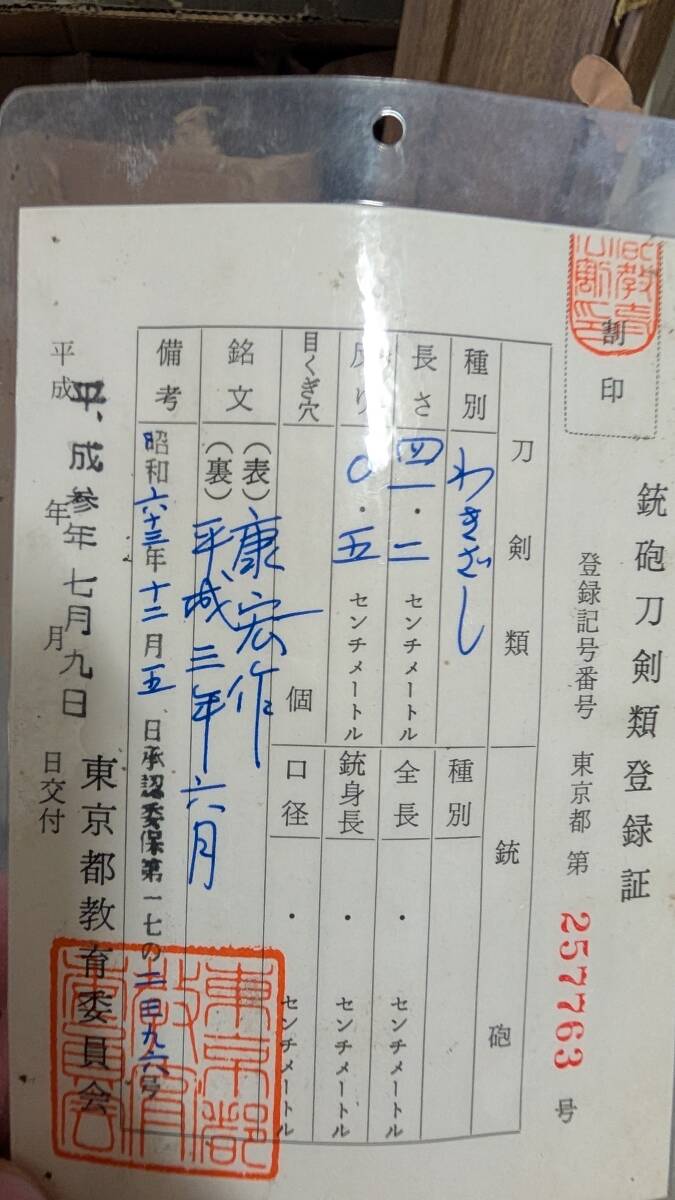 銃砲刀剣類登録証
割印
登録記号番号 東京都 第 257763 号
刀剣類
種別 わきざし
長さ 四一・二 センチメートル
反り 〇・五 センチメートル
目くぎ穴 個
銘文 (表) 康宏作
(裏) 平成三年六月
銃砲
種別
全長 ・ センチメートル
銃身長 ・ センチメートル
口径 ・ センチメートル
備考 昭和六十三年十二月五日承認委保第一七の
平成 年 月 日交付
平成参年七月九日
東京都教育委員会